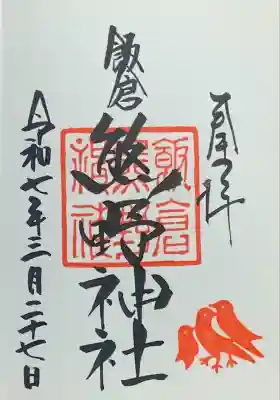 奉拝
飯倉
熊野神社
令和七年三月二十七日
飯倉
熊野
神社